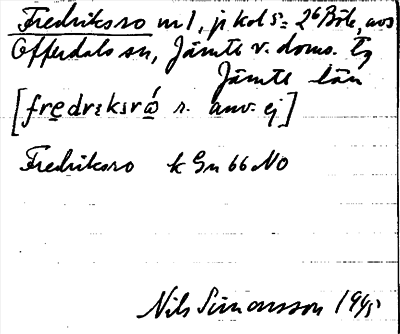 Fredriksro nr 1, jr kol s: 2⁶ Böle, avs
Offerdals sn, Jämts v. doms. tg
Jämts län
[fredrɛksró s. anv. ej]
Fredriksro k Gn 66 NO
Nils Simonsson 1945